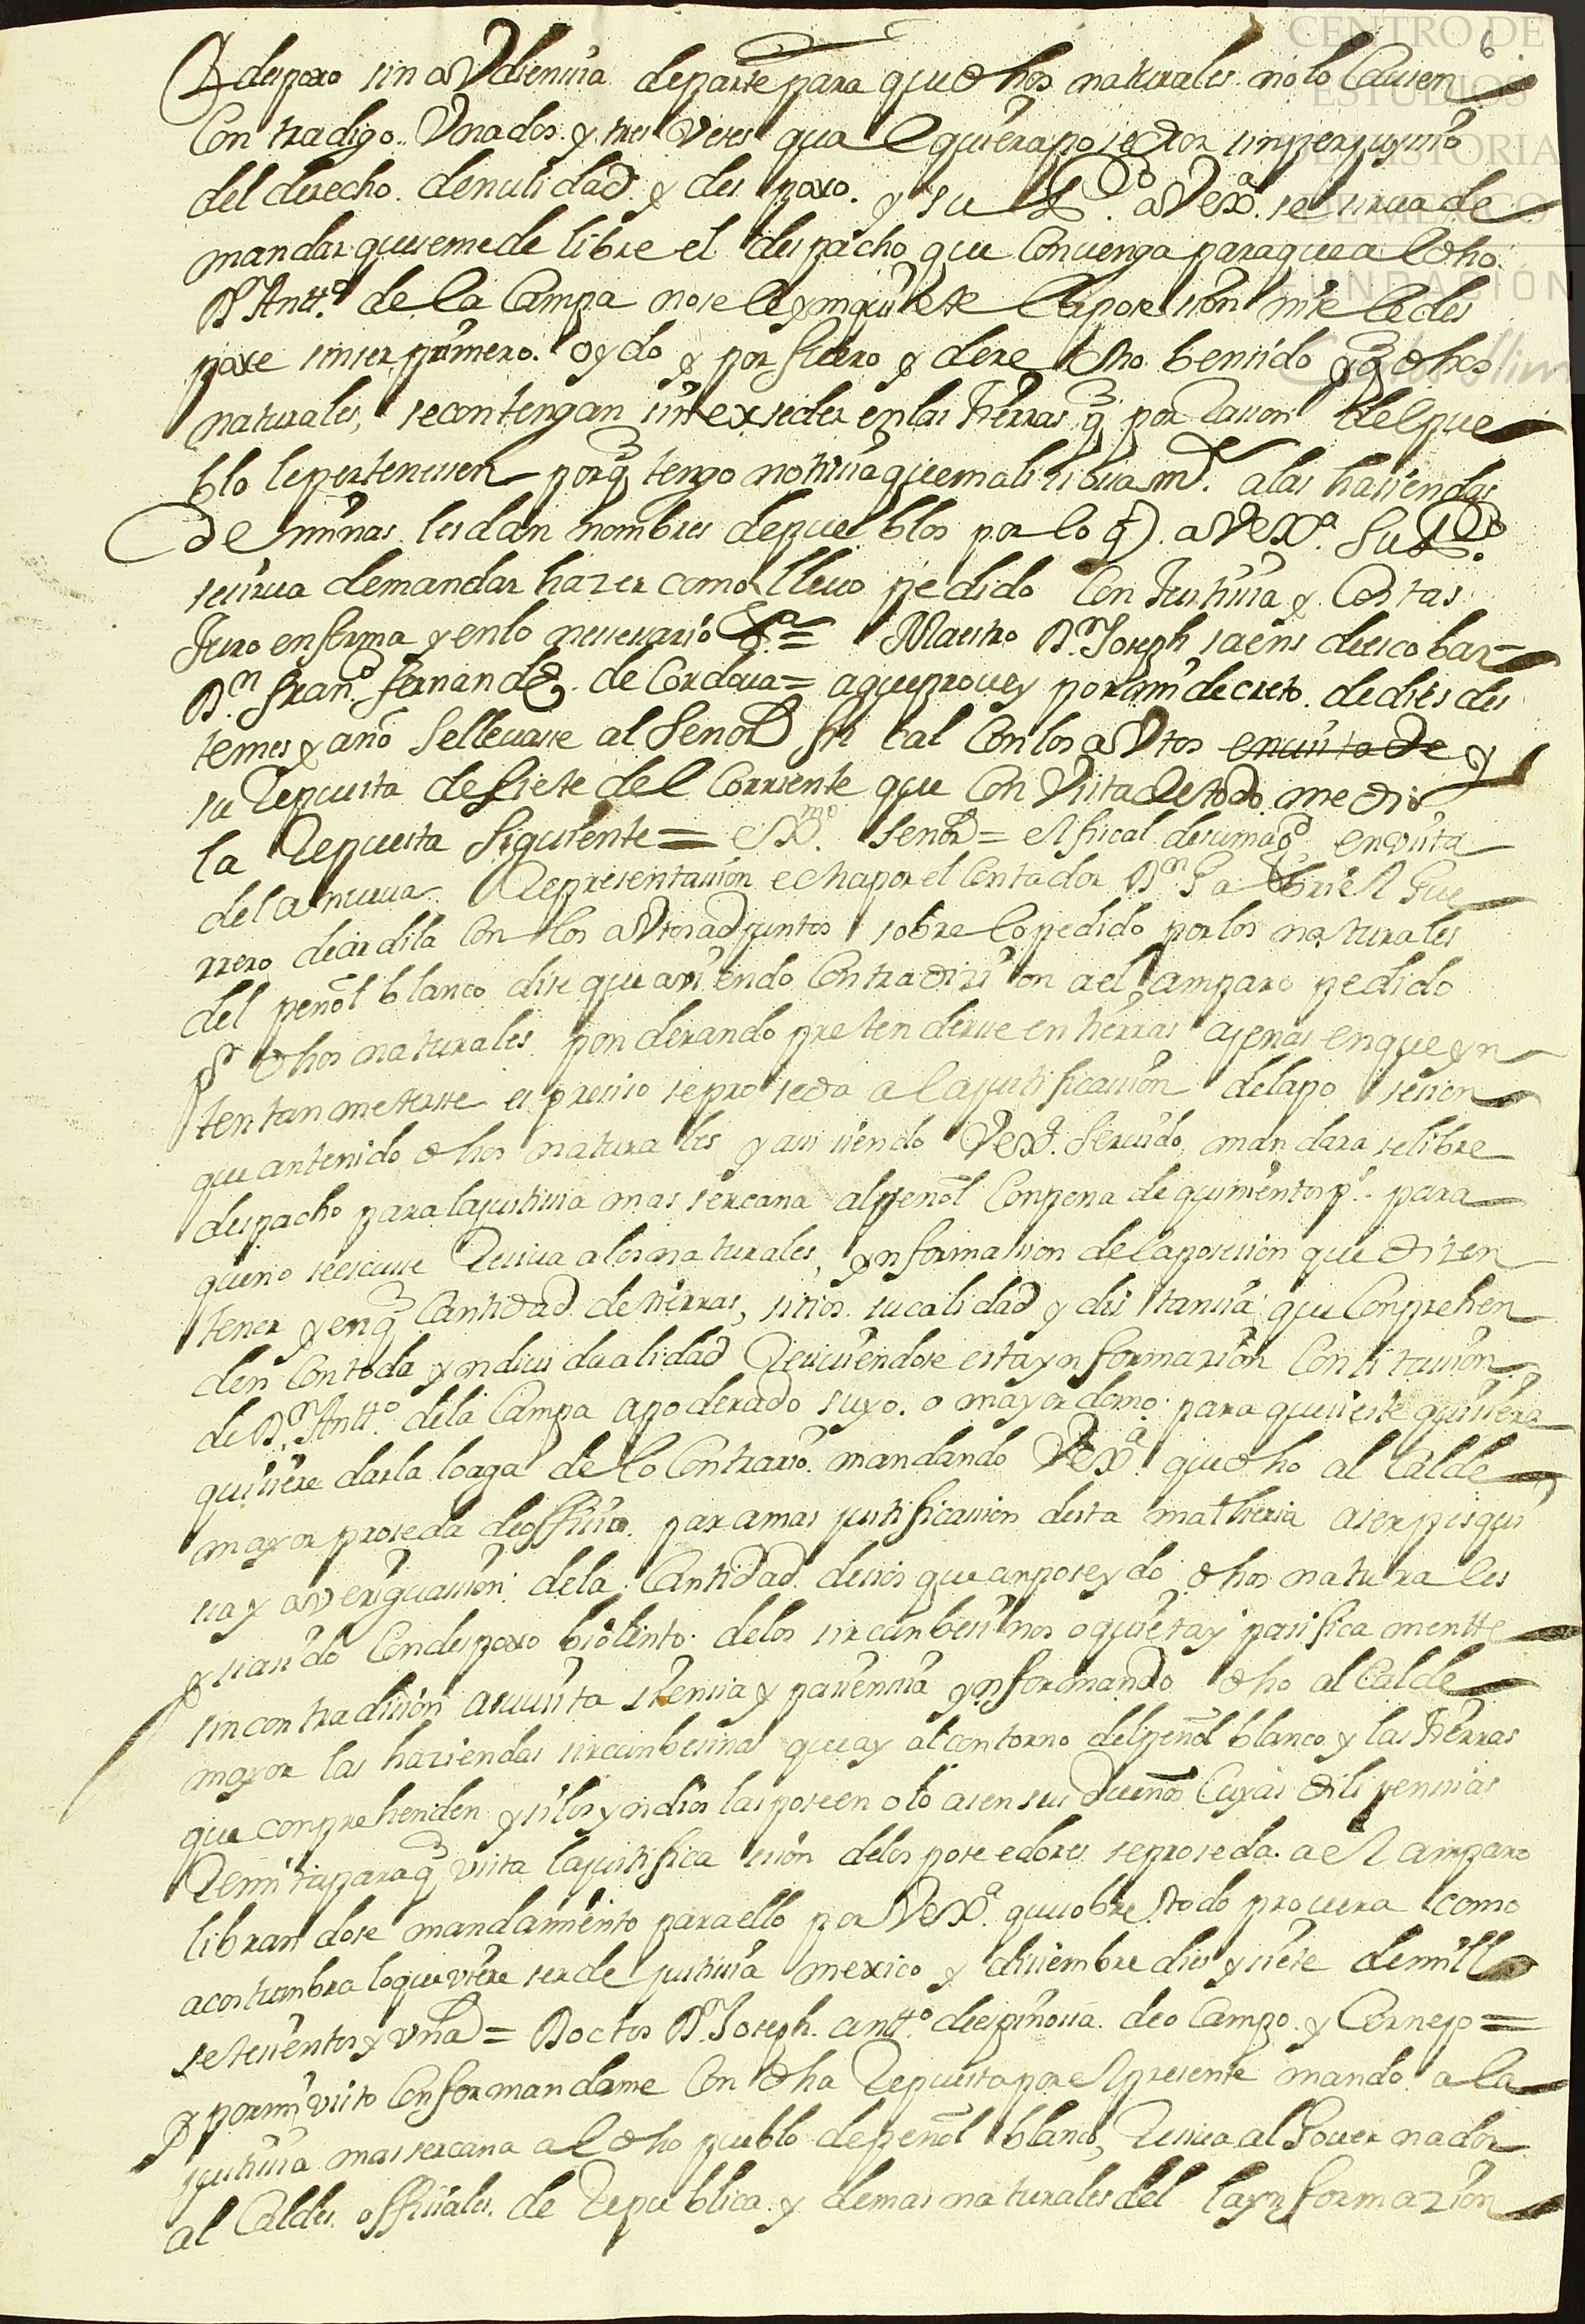 CENTRO DE
ESTUDIOS
DE HISTORIA
DE MÉXICO
FUNDACIÓN
Carlos Slim
6
despoxo sin aVdiensia departe para que dhos naturales no lo Causen
Contradigo Vna dos y tres Veses qua lquiera posecion sin perjuysio
del derecho de nulidad y des poxo. y su aVexa se sirua de
mandar que seme de libre el despacho que Conuenga paraque al dho
Dn Antto de la Campa no se le ynquiete la posesion ni se le des
poxe sin ser primero oydo y por fuero y dere cho bensido y q dhos
naturales, se contengan sin exseder en las tierras q por Rason del pue
blo le pertenesen porq tengo notisia que malisiosamte a las hasiendas
de minas les dan nombres de pueblos por lo q aVexa Supco
se sirua demandar hazer como lleuo pedido Con Justisia y Costas
Juro en forma y en lo nesesario &a = Maestro Dn Joseph saens de esco bar =
Dn Frano Fernandez de Cordoua = a que prouey por mi decreto de dies des
te mes y año se lleuase al Señor fis cal Con los aVtos en uista de y
su Repuesta de siete del Corriente que Con Vista de todo me dio
la Repuesta siguiente = Exmo Señor = el fiscal de su magd en vista
de la nueua Representasion echa por el Contador Dn Gabriel Gue
rrero de ardila Con los aVtos adjuntos sobre lo pedido por los naturales
del peñol blanco dise que auiendo Contradision a el amparo pedido
pr dhos naturales ponderando pretenderse en tierras ajenas en que yn
tentan meterse es presiso se proseda a la justificasion de la po sesion
que an tenido dhos naturales y asi siendo Vexa seruido mandara se libre
despacho para la justisia mas sercana al peñol Con pena de quinientos ps para
que no se escuse Resiua a los naturales, ynformasion de la posesion que dizen
tener y en q Cantidad de tierras, sitios su calidad y distansia que Conprehen
den Con toda yndiuidualidad Resiuiendose esta ynformazion Con sitasion
de Dn Antto de la Campa apoderado suyo o mayordomo para que si este quisiere
quisiere darla lo aga de lo Contrario mandando Vexa que dho alCalde
mayor proseda de offisio para mas justificasion desta matheria aser pesqui
sa y averiguasion de la Cantidad de sitios que an poseydo dhos naturales
y siasido Con despoxo biolento de los sircunbesinos o quieta y pasificamentte
sin contradision asu uista siensia y pasiensia ynformando dho alCalde
mayor las haziendas sircunbesinas que ay al contorno del peñol blanco y las tierras
que conprehenden y si los yndios las poseen o lo asen sus dueños Cuyas dilijensias
Remita para q vista la justifica sion de los poseedores se proseda a el amparo
librandose mandamiento para ello por Vexa que sobre todo prouera como
acostumbra lo que viere ser de justisia mexico y disiembre dies y siete de mill
setesientos y vno = Doctor Dn Joseph antto de espinosa de o Campo y Cornejo =
y por mi visto Conformandome Con dha Repuesta por el presente mando a la
justisia mas sercana al dho pueblo de peñol blanco, Resiua al Gouernador
al Caldes offisiales de Republica y demas naturales del la ynformazion